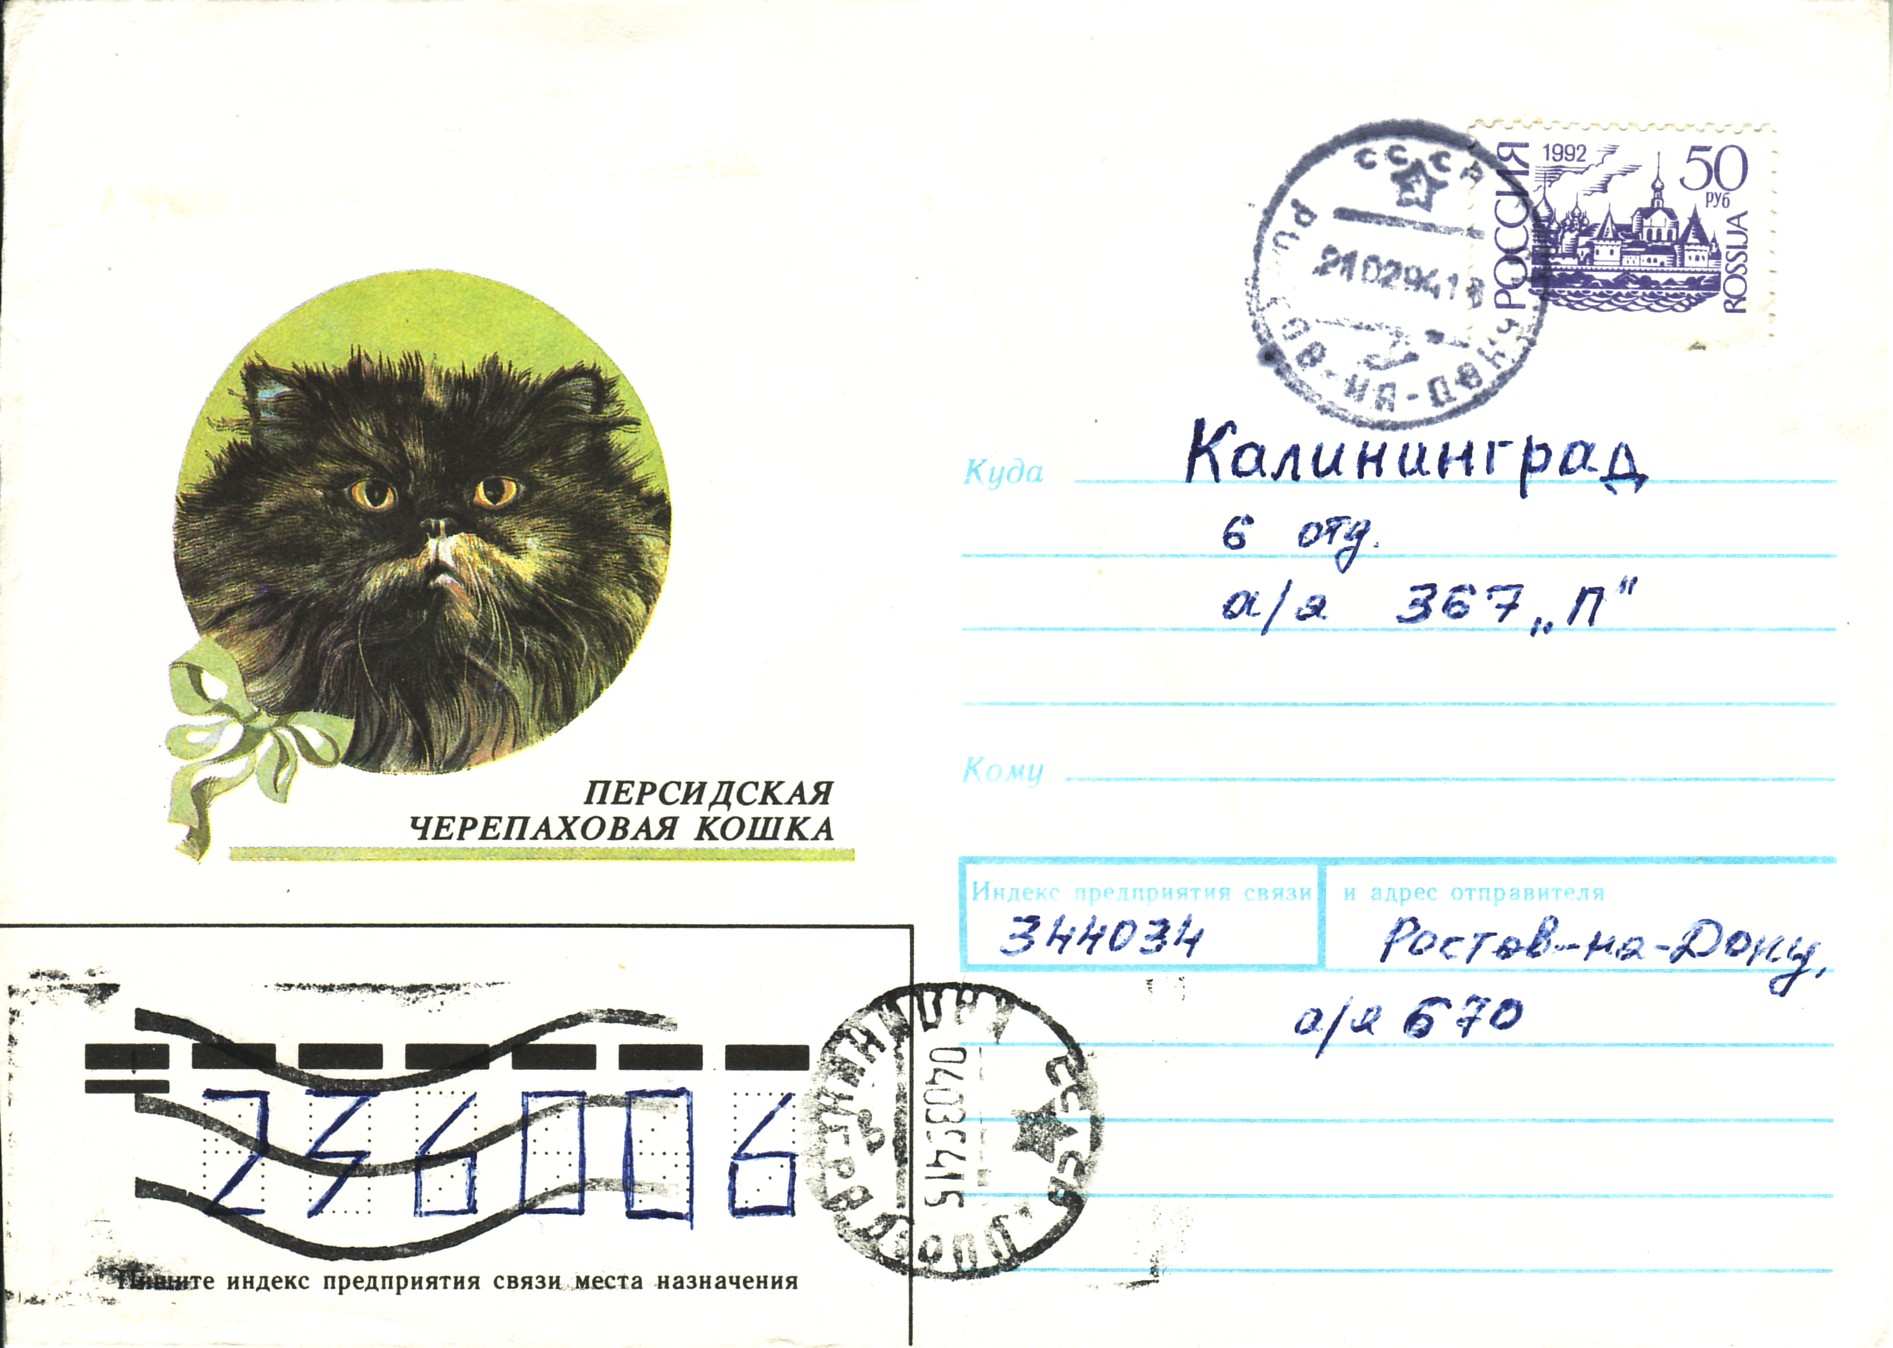 РОССИЯ
1992
50
РУБ
ROSSIJA
СССР
21029418
РОСТОВ-НА-ДОНУ
Куда Калининград
6 отд.
а/я 367 „П“
Кому
ПЕРСИДСКАЯ
ЧЕРЕПАХОВАЯ КОШКА
Индекс предприятия связи и адрес отправителя
344034 Ростов-на-Дону,
а/я 670
236006
КАЛИНИНГРАД
04039415
Пишите индекс предприятия связи места назначения